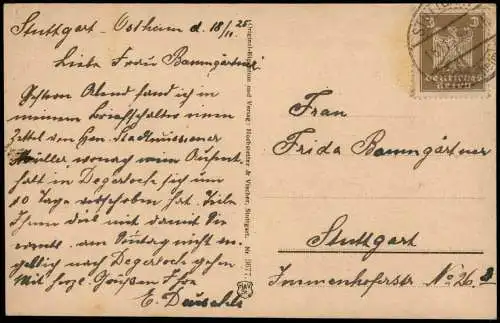 Stuttgart - Ostheim d. 18/11. 25
Liebe Frau Baumgärtner!
Gestern Abend fand ich in
meinem Briefschalter einen
Zettel von Hrn. Stadtmissionar
Müller wonach sein Aufent-
halt in Degerloch sich um
10 Tage verschoben hat. Teile
Ihnen dies mit damit Sie
am Sonntag nicht ver-
geblich nach Degerloch gehen
Mit herzl. Grüßen Ihre
E.
Verlag: Hochstetter & Vischer, Stuttgart. Nr. 3677.
3 3
Deutsches
Reich
STUTTGART
Frau
Frida Baumgärtner
Stuttgart
Immenhoferstr. No 26.